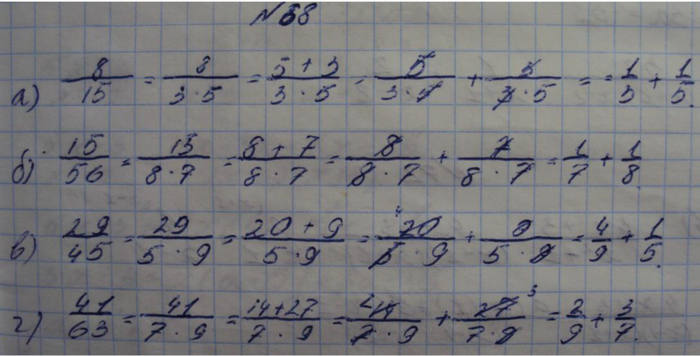 № 68
а) 8/15 = 8/3·5 = 5+3/3·5 = 5/3·5 + 3/3·5 = 1/3 + 1/5
б) 15/56 = 15/8·7 = 8+7/8·7 = 8/8·7 + 7/8·7 = 1/7 + 1/8
в) 29/45 = 29/5·9 = 20+9/5·9 = 20 4/5·9 + 9/5·9 = 4/9 + 1/5.
г) 41/63 = 41/7·9 = 14+27/7·9 = 2 14/7·9 + 27 3/7·9 = 2/9 + 3/7.